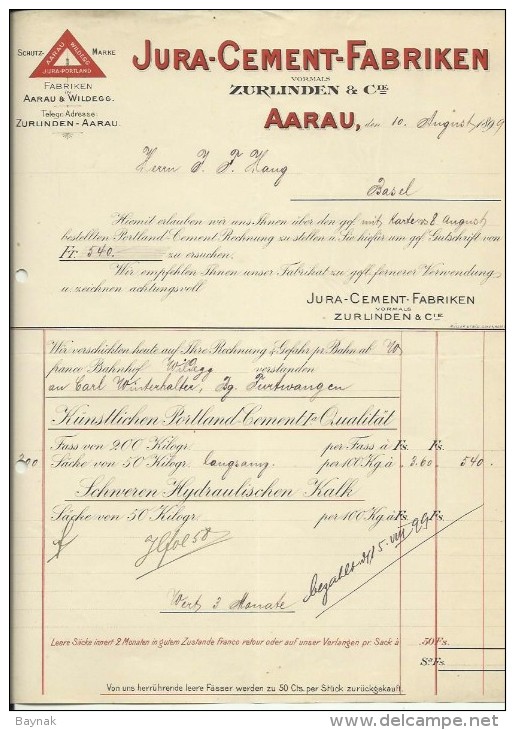 SCHUTZ- MARKE
AARAU WILDEGG
JURA-PORTLAND
FABRIKEN
IN
AARAU & WILDEGG.
Telegr. Adresse:
ZURLINDEN-AARAU.
JURA-CEMENT-FABRIKEN
VORMALS
ZURLINDEN & CIE
AARAU, den 10. August 1899
Herrn J. F. Hang
Basel
Hiemit erlauben wir uns Ihnen über den gefl. mit Karte v. 8 August
bestellten Portland-Cement Rechnung zu stellen u. Sie hiefür um gefl. Gutschrift von
Fr. 540.- zu ersuchen.
Wir empfehlen Ihnen unser Fabrikat zu gefl. fernerer Verwendung
u. zeichnen achtungsvoll
JURA-CEMENT-FABRIKEN
VORMALS
ZURLINDEN & CIE
Wir verschickten heute auf Ihre Rechnung & Gefahr pr. Bahn ab W
franco Bahnhof Wildegg verstanden
an Carl Winterhalter, Bg. Furtwangen
Künstlichen Portland-Cement Ia Qualität
Fass von 200 Kilogr. per Fass à Fs.
200 Säcke von 50 Kilogr. langsam per 100 Kg. à " 3.60 540.
Schweren Hydraulischen Kalk
Säcke von 50 Kilogr. per 100 Kg. à Fs.
bezahlt d. 15. VIII 99
Wert 3 Monate
Leere Säcke innert 2 Monaten in gutem Zustande franco retour oder auf unser Verlangen pr. Sack à 50 Fs.
Sa Fs.
Von uns herrührende leere Fässer werden zu 50 Cts. per Stück zurückgekauft.
Baynak
delcampe.net